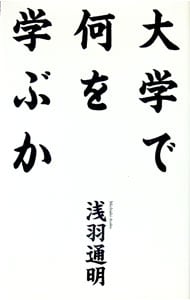 大学で
何を
学ぶか
浅羽通明